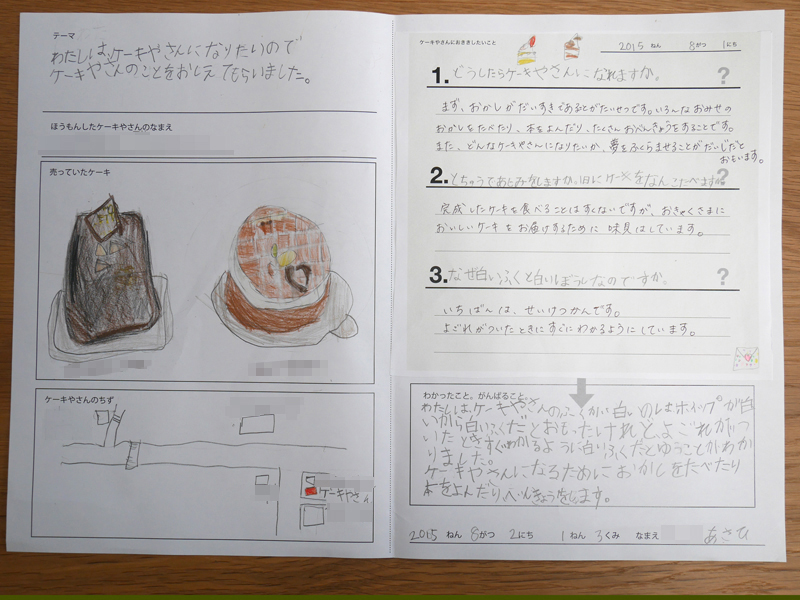 テーマ
わたしは、ケーキやさんになりたいので
ケーキやさんのことをおしえてもらいました。
ほうもんしたケーキやさんのなまえ
売っていたケーキ
ケーキやさんのちず
ケーキやさん
ケーキやさんにおききしたいこと
2015 ねん 8がつ 1にち
1. どうしたらケーキやさんになれますか。 ?
まず、おかしがだいすきであることがたいせつです。いろんなおみせの
おかしをたべたり、本をよんだり、たくさんおべんきょうをすることです。
また、どんなケーキやさんになりたいか、夢をふくらませることがだいじだと
おもいます。
2. とちゅうであじみしますか。1日にケーキをなんこたべます ?
完成したケーキを食べることはすくないですが、おきゃくさまに
おいしいケーキをお届けするために味見はしています。
3. なぜ白いふくと白いぼうしなのですか。 ?
いちばんは、せいけつかんです。
よごれがついたときにすぐにわかるようにしています。
わかったこと。がんばること
わたしは、ケーキやさんのふくが白いのはホイップが白
いから白いふくだとおもったけれど、よごれがつ
いたときすぐわかるように白いふくだとゆうことがわか
りました。
ケーキやさんになるためにおかしをたべたり
本をよんだり、べんきょうをします。
2015 ねん 8がつ 2にち 1ねん 3くみ なまえ あさひ